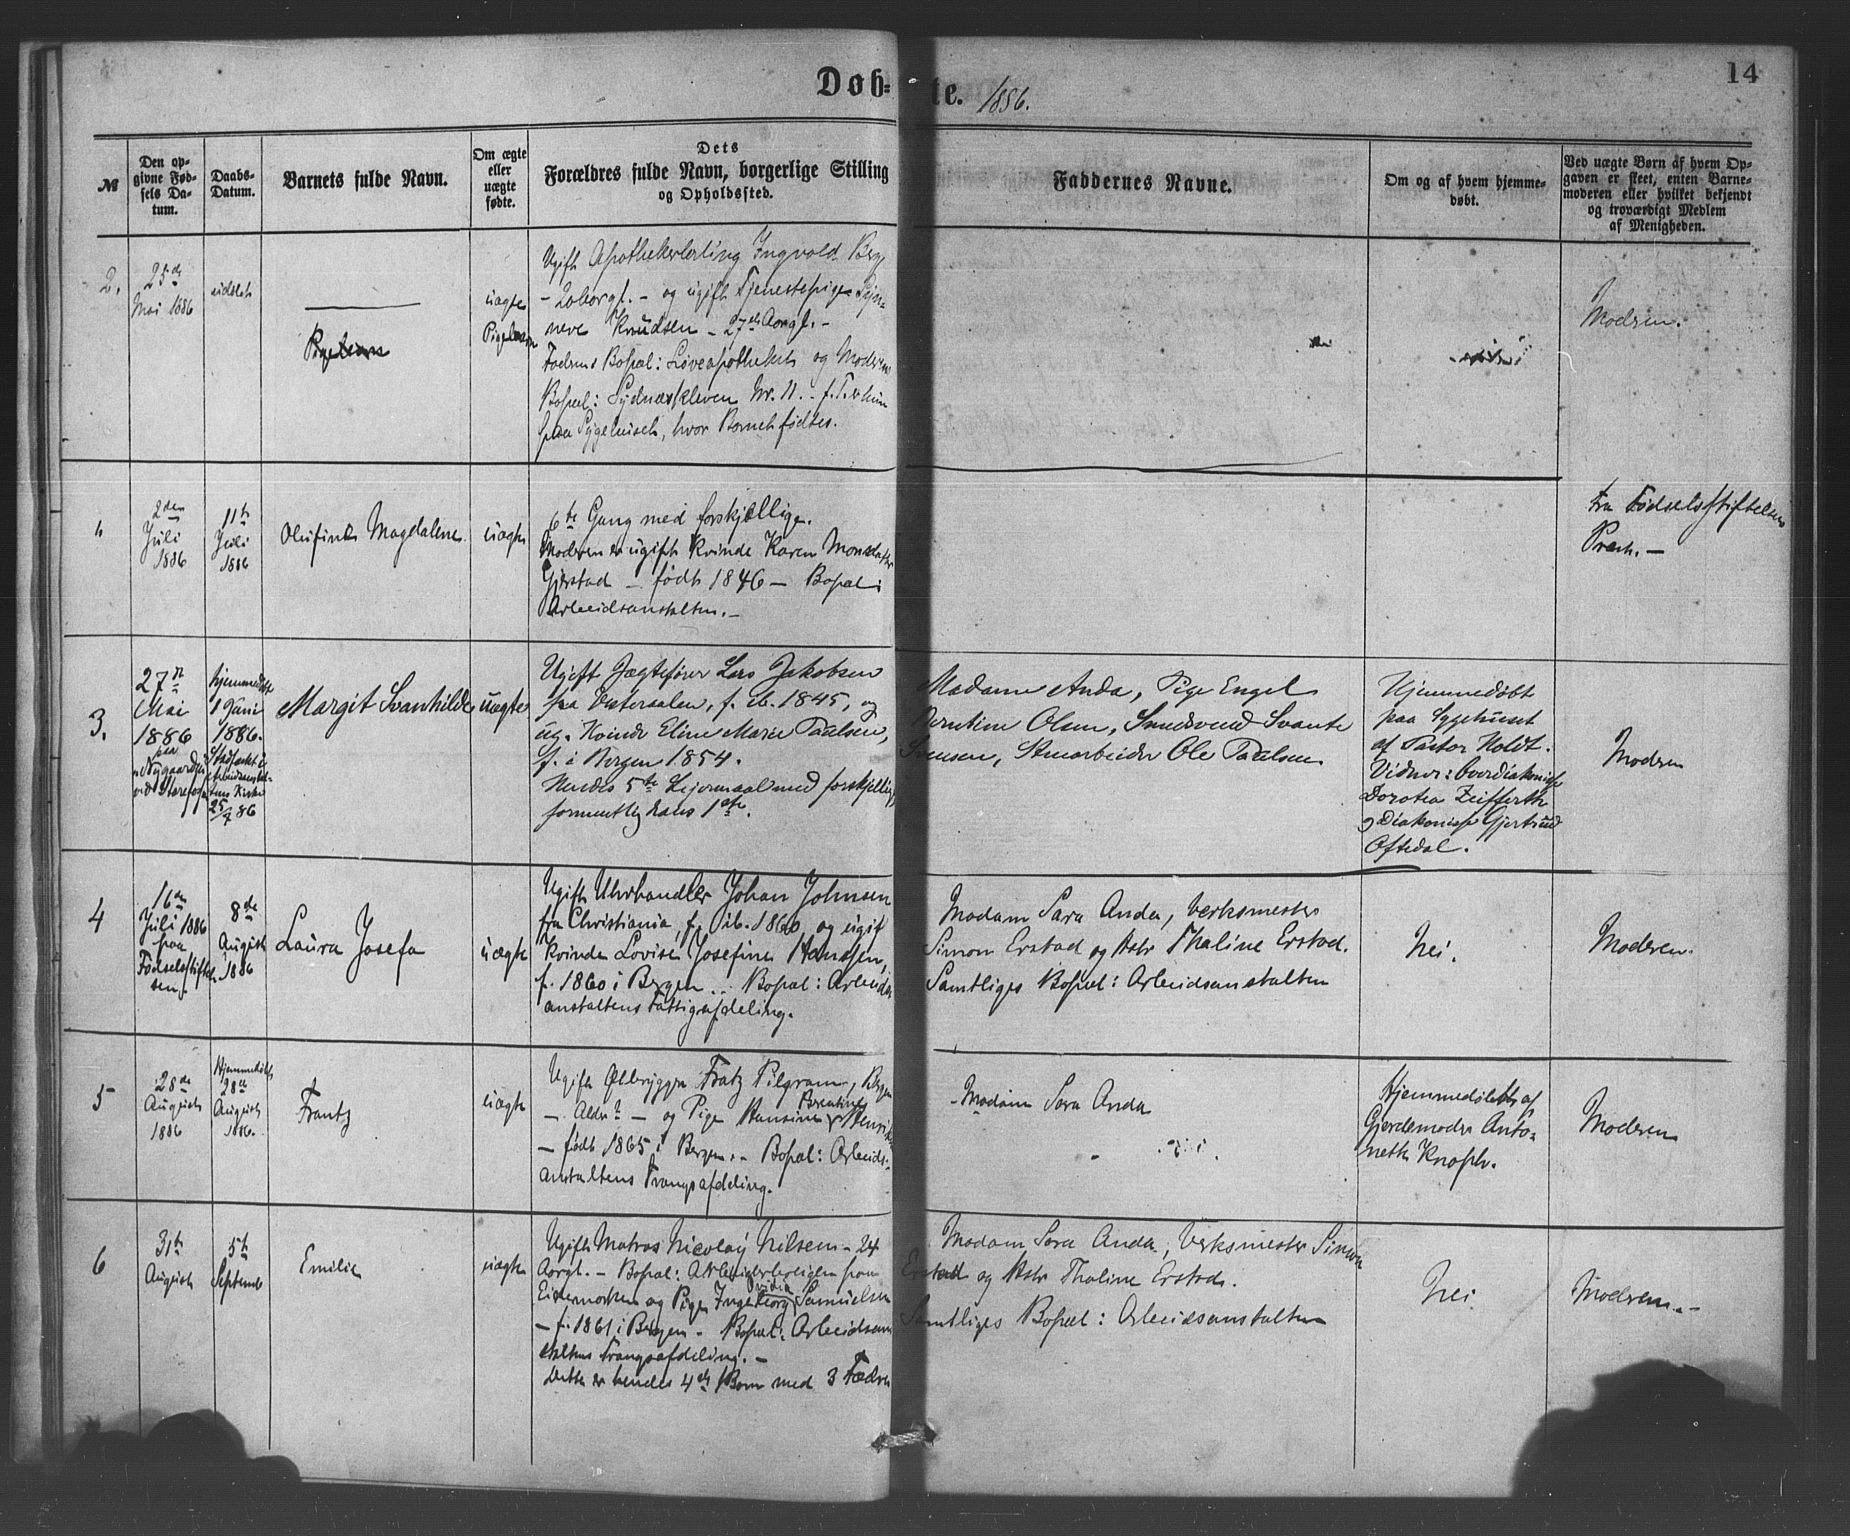 Døb-
te.
1886.
14
№
Den op-
givne Fød-
sels Da-
tum.
Daabs-
Datum.
Barnets fulde Navn.
Om ægte
eller
uægte
fødte.
Dets
Forældres fulde Navn, borgerlige Stilling
og Opholdssted.
Faddernes Navne.
Om og af hvem hjemme-
døbt.
Ved uægte Børn af hvem Op-
gaven er skeet, enten Barne-
moderen eller hvilket bekjendt
og troværdigt Medlem
af Menigheden.
2.
25de
Mai 1886
udøbt
Pigebarn
uægte
Pigebarn
Ugift Apothekerlærling Ingvold Berg
- 20 aargl. - og ugift Tjenestepige
Knudsen - 27 Aargl. -
Fadrens Bopæl: Løveapotheket og Moderens
Bopæl: Sydnæskleven Nr. 11. -
paa Sygehuset, hvor Barnet fødtes.
Modren.
"
2den
Juli
1886
11te
Juli
1886
Olufine Magdalene
uægte
6te Gang med forskjællige.
Moderen er ugift Kvinde Karen Monsdatter
Gjerstad - født 1846 - Bopæl:
Arbeidsanstalten. -
fra Fødselsstiftelsens
Præst. -
3.
27n
Mai
1886
paa
Nygaard
hjemmedøbt
1 Juni
1886.
Stadfæstet i
Arbeidsanstal-
tens Kirke
25/7 86
Margit Svanhilde
uægte
Ugift Jægtefører Lars Jakobsen
fra Vesteraalen, f. ib. 1845, og
ug. Kvinde Eline Marie Paalsen,
f. i Bergen 1854.
Hendes 5te Leiermaal med forskjellig,
formentlig hans 1ste.
Madame Anda, Pige Engel
Berntine Olsen, Smedsvend Svante
Svensen, Stenarbeider Ole Paalsen.
Hjemmedøbt
paa Sygehuset
af Pastor Holdt.
Vidner: Overdiakonisse
Dorotea Zeifferth
og Diakonisse Gjertrud
Oftedal.
Modren
4
16de
Juli 1886
paa
Fødselsstiftel-
sen.
8de
August
1886
Laura Josefa
uægte
Ugift Uhrhandler Johan Johnsen
fra Christiania, f. ib. 1860 og ugift
Kvinde Lovise Josefine Hanssen,
f. 1860 i Bergen. Bopæl: Arbeids-
anstaltens Fattigafdeling.
Madam Sara Anda, Værksmester
Simon Erstad og Hstr Thaline Erstad.
Samtliges Bopæl: Arbeidsanstalten
Nei.
Moderen.
5
28de
August
1886
Hjemmedøbt
28de
August
1886.
Frantz
uægte
Ugift Ølbrygger Frantz Pilgram, Bergen
- Alder? - og Pige Hansine Berntine Henriks
- født 1865 i Bergen. - Bopæl: Arbeids-
anstaltens Tvangsafdeling.
Madam Sara Anda
Hjemmedøbt af
Gjordemoder Anto-
nette Knoph.
Moderen
6
31te
August
5te
September
Emilie
uægte
Ugift Matros Nicolay Nilsen - 24
Aargl. - Bopæl: Arbeiderboligen paa
Eidemarken og Pige Ingeborg Ovidia Samuelsen
- f. 1861 i Bergen - Bopæl: Arbeidsan-
staltens Tvangsafdeling. -
Dette er hendes 4de Barn med 3 Fædre
Madam Sara Anda, Værksmester Simon
Erstad og Hstr Thaline Erstad.
Samtliges Bopæl: Arbeidsanstalten
Nei
Modren. -